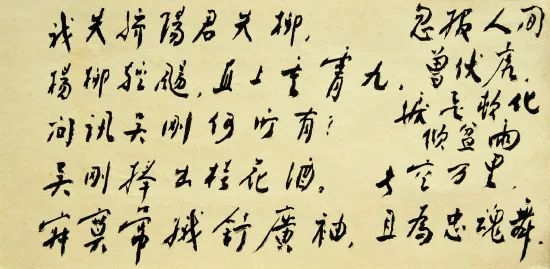 我失骄陽君失柳,
楊柳轻颺,直上重霄九,
问讯吴刚何所有?
吴刚捧出桂花酒。
寂寞嫦娥舒廣袖,
忽报人间
曾伏虎,
泪飞顿作
倾盆雨
空万里,
且為忠魂舞.